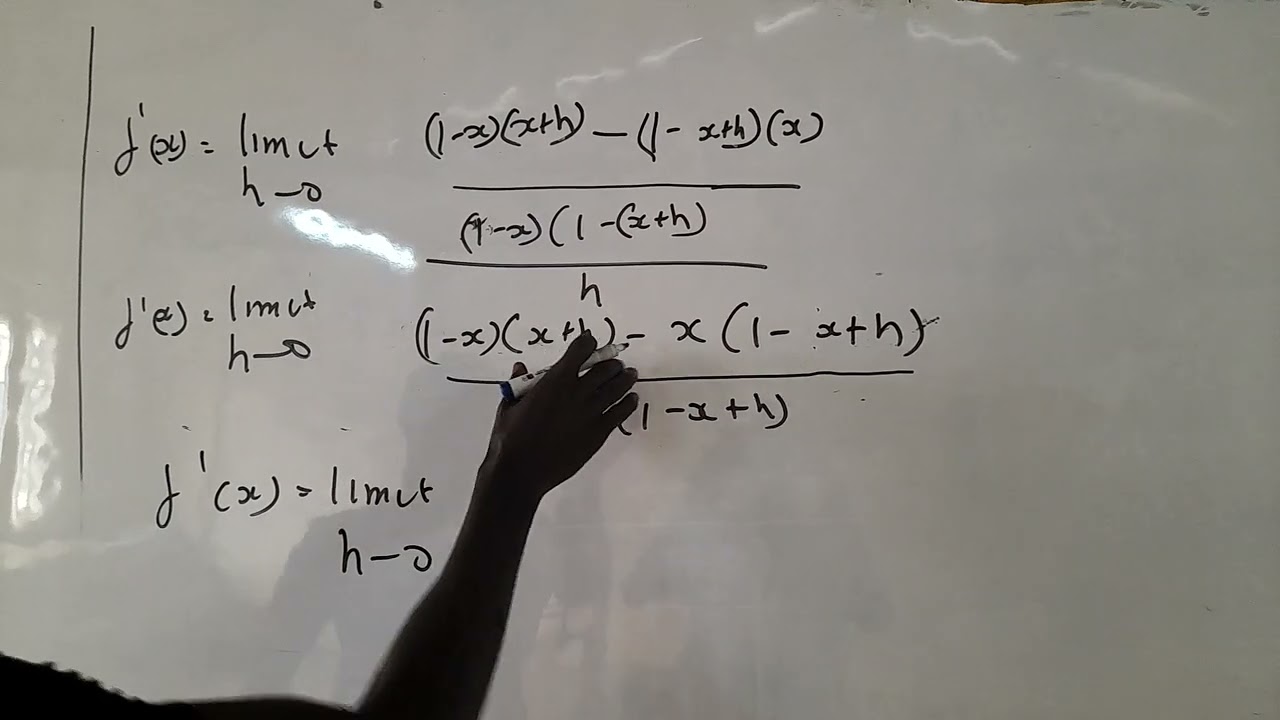 f'(x) = limit (1-x)(x+h) - (1- x+h)(x)
h→0 (1-x)(1-(x+h)
h
f'(x) = limit (1-x)(x+h) - x(1- x+h)
h→0 (1-x+h)
f'(x) = limit
h→0